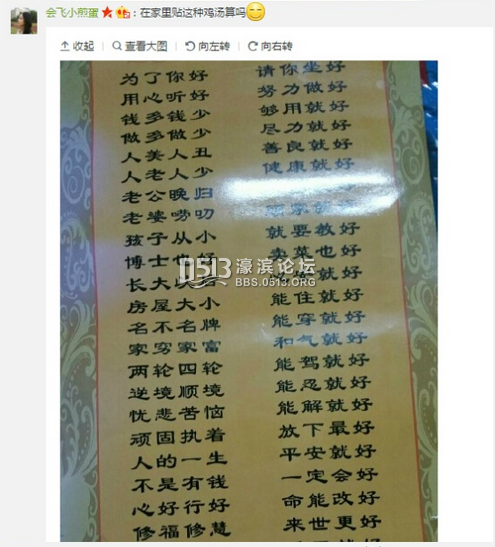 会飞小煎蛋：在家里贴这种鸡汤算吗
收起 查看大图 向左转 向右转
为了你好 请你坐好
用心听好 努力做好
钱多钱少 够用就好
做多做少 尽力就好
人美人丑 善良就好
人老人少 健康就好
老公晚归
老婆唠叨 就好
孩子从小 就要教好
博士也好 卖菜也好
长大以 就好
房屋大小 能住就好
名不名牌 能穿就好
家穷家富 和气就好
两轮四轮 能驾就好
逆境顺境 能忍就好
忧悲苦恼 能解就好
顽固执着 放下最好
人的一生 平安就好
不是有钱 一定会好
心好行好 命能改好
修福修慧 来世更好
0513 濠滨论坛
BBS.0513.ORG